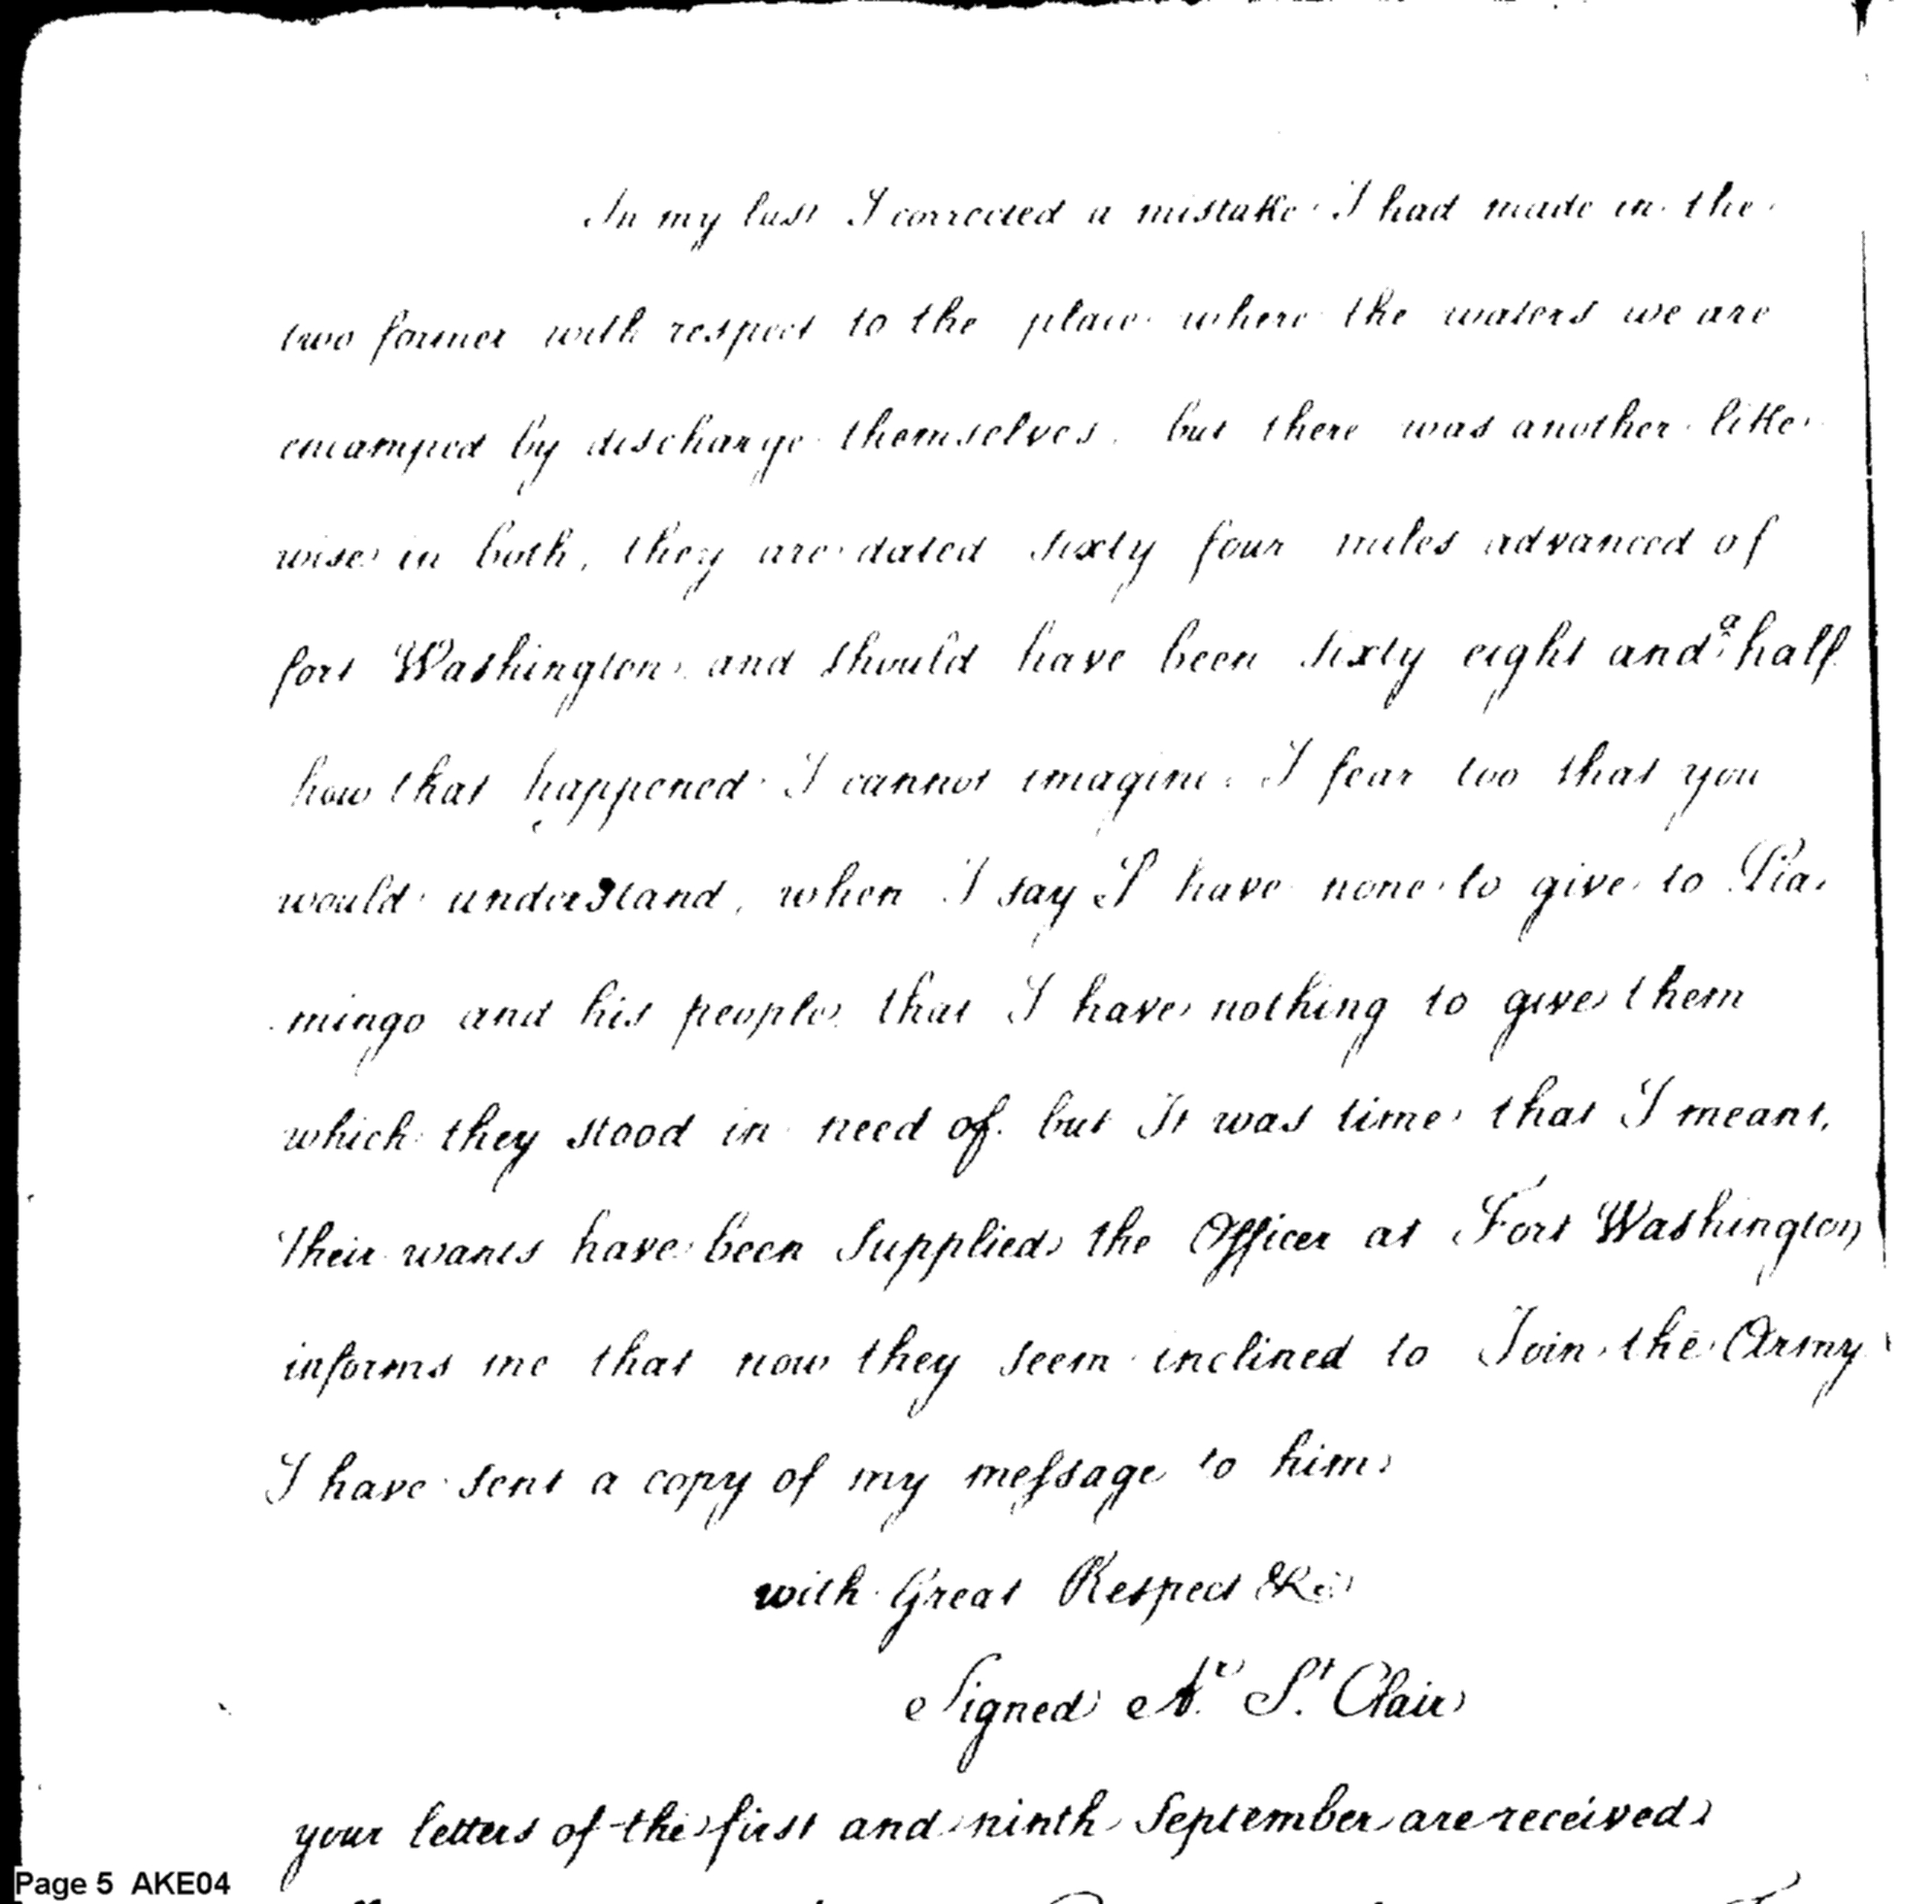 In my last I corrected a mistake I had made in the
two former with respect to the place where the waters we are
encamped by discharge themselves, but there was another like
wise in both, they are dated sixty four miles advanced of
fort Washington and should have been sixty eight and a half
how that happened I cannot imagine. I fear too that you
would understand, when I say I have none to give to Pia
mingo and his people that I have nothing to give them
which they stood in need of. but It was time that I meant,
Their wants have been Supplied, the Officer at Fort Washington
informs me that now they seem inclined to Join the Army
I have sent a copy of my message to him.
with Great Respect &c
Signed Ar. St. Clair
your letters of the first and ninth September are received
Page 5 AKE04